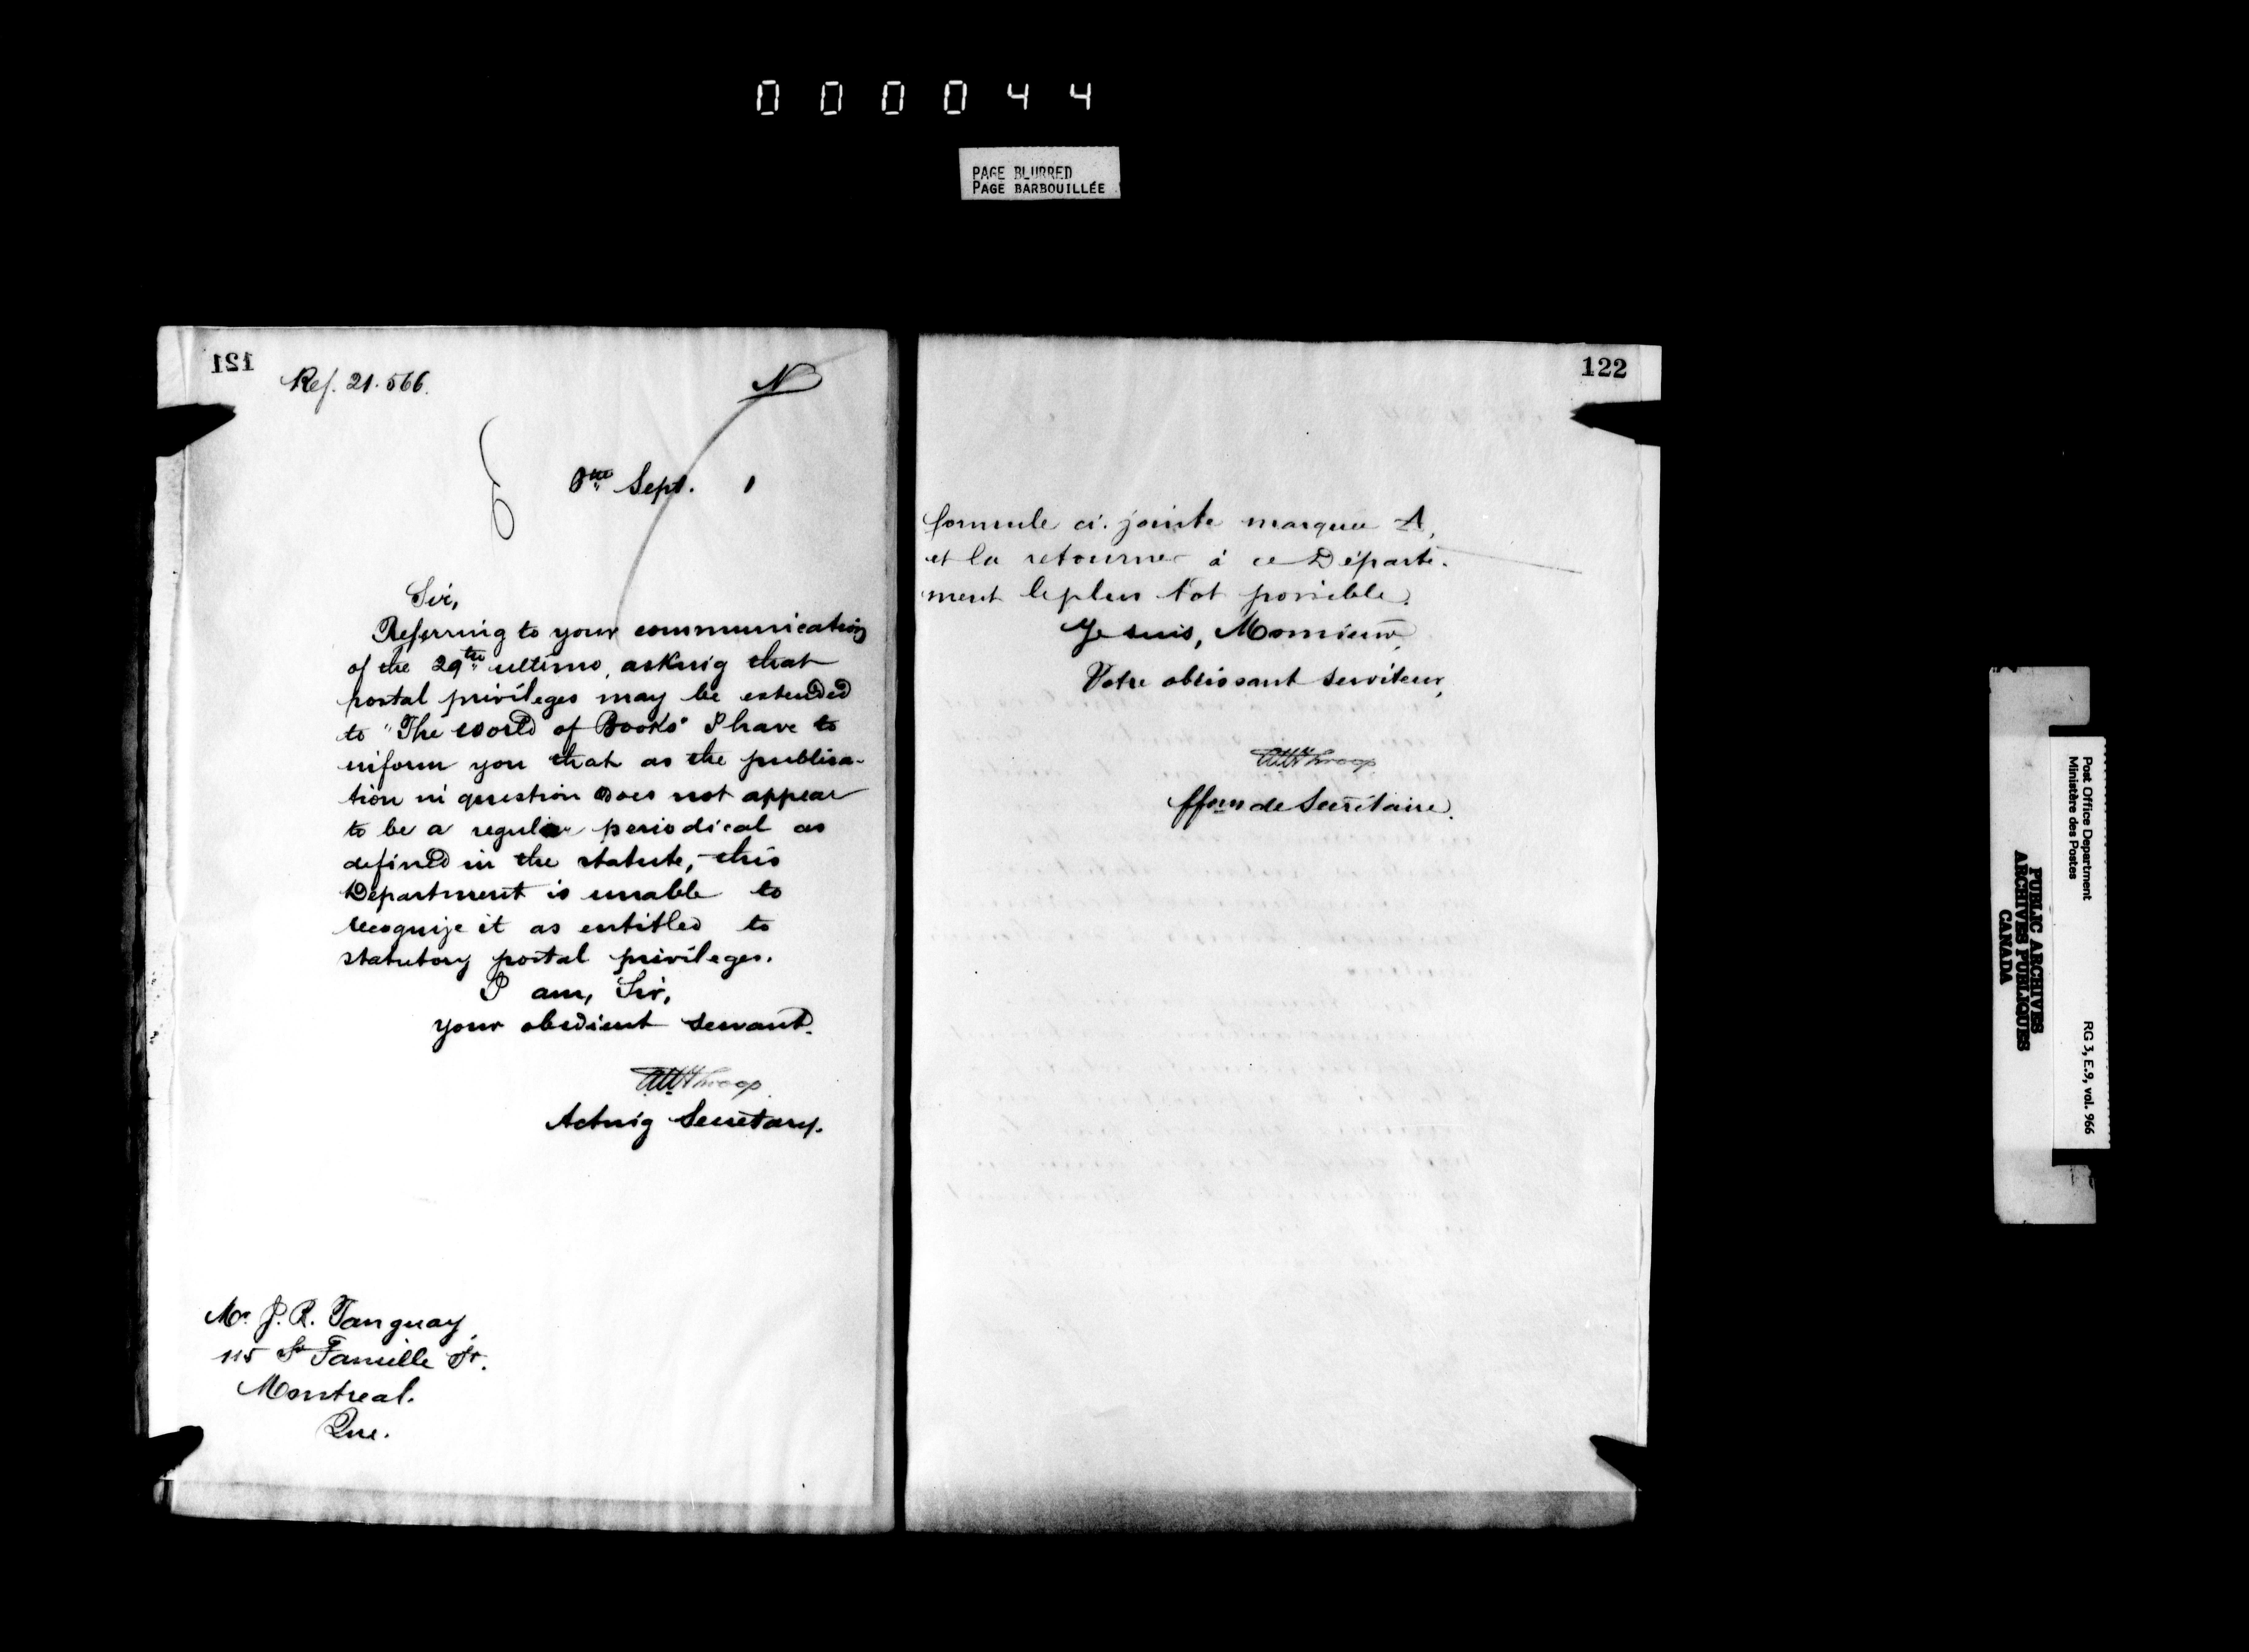 000044
PAGE BLURRED
PAGE BARBOUILLÉE
121
Ref. 21.566.
N
Sept. 1
Sir,
Referring to your communication
of the 29th ultimo, asking that
postal privileges may be extended
to "The World of Books" I have to
inform you that as the publica-
tion in question does not appear
to be a regular periodical as
defined in the statute, this
Department is unable to
recognize it as entitled to
statutory postal privileges.
I am, Sir,
your obedient servant.
Throop
Acting Secretary.
Mr J. R. Tanguay,
115 St Famille St.
Montreal.
Que.
122
formule ci-jointe marquée A,
et la retourner à ce Départe-
ment le plus tôt possible.
Je suis, Monsieur,
Votre obéissant serviteur,
Throop
ffons de Secrétaire.
Post Office Department
Ministère des Postes
RG 3, E.9, vol. 966
PUBLIC ARCHIVES
ARCHIVES PUBLIQUES
CANADA